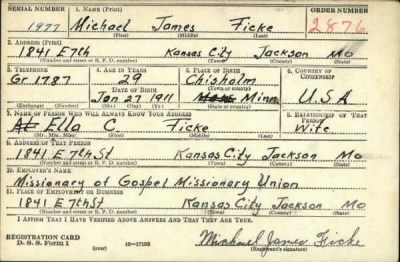 SERIAL NUMBER 1. NAME (Print) ORDER NUMBER
1977 Michael James Ficke 2876
(First) (Middle) (Last)
2. ADDRESS (Print)
1841 E 7th Kansas City Jackson Mo
(Number and street or R. F. D. number) (Town) (County) (State)
3. TELEPHONE 4. AGE IN YEARS 5. PLACE OF BIRTH 6. COUNTRY OF CITIZENSHIP
Gr 1787 29 Chisholm
DATE OF BIRTH (Town or county)
Jan 27 1911 Minn. U.S.A
(Exchange) (Number) (Mo.) (Day) (Yr.) (State or country)
7. NAME OF PERSON WHO WILL ALWAYS KNOW YOUR ADDRESS 8. RELATIONSHIP OF THAT PERSON
Ella C. Ficke Wife
(Mr., Mrs., Miss) (First) (Middle) (Last)
9. ADDRESS OF THAT PERSON
1841 E 7th St Kansas City Jackson Mo
(Number and street or R. F. D. number) (Town) (County) (State)
10. EMPLOYER'S NAME
Missionary of Gospel Missionary Union
11. PLACE OF EMPLOYMENT OR BUSINESS
1841 E 7th St Kansas City Jackson Mo
(Number and street or R. F. D. number) (Town) (County) (State)
I AFFIRM THAT I HAVE VERIFIED ABOVE ANSWERS AND THAT THEY ARE TRUE.
REGISTRATION CARD
D. S. S. Form 1 (over) 16—17105 Michael James Ficke
(Registrant's signature)